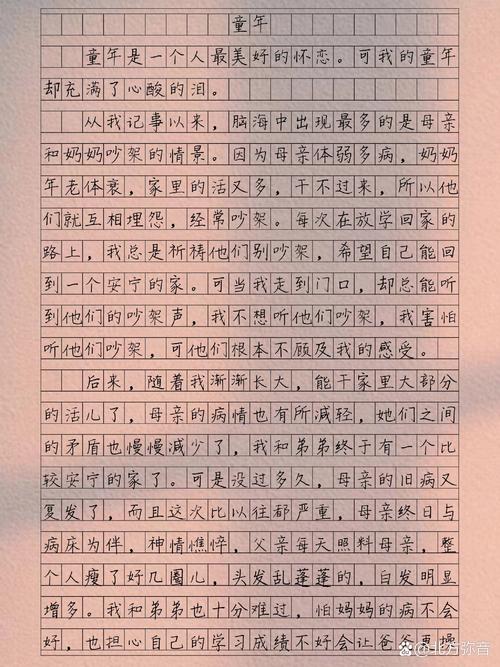 童年
童年是一个人最美好的怀恋。可我的童年
却充满了心酸的泪。
从我记事以来，脑海中出现最多的是母亲
和奶奶吵架的情景。因为母亲体弱多病，奶奶
年老体衰，家里的活又多，干不过来，所以他
们就互相埋怨，经常吵架。每次在放学回家的
路上，我总是祈祷他们别吵架，希望自己能回
到一个安宁的家。可当我走到门口，却总能听
到他们的吵架声，我不想听他们吵架，我害怕
听他们吵架，可他们根本不顾及我的感受。
后来，随着我渐渐长大，能干家里大部分
的活儿了，母亲的病情也有所减轻，她们之间
的矛盾也慢慢减少了，我和弟弟终于有一个比
较安宁的家了。可是没过多久，母亲的旧病又
复发了，而且这次比以往都严重，母亲终日与
病床为伴，神情憔悴，父亲每天照料母亲，整
个人瘦了好几圈儿，头发乱蓬蓬的，白发明显
增多。我和弟弟也十分难过，怕妈妈的病不会
好，也担心自己的学习成绩不好会让爸爸更操
@北方弥音